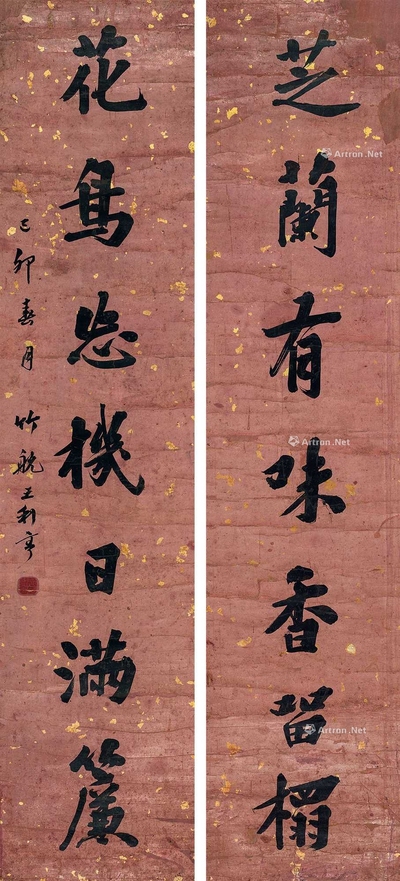 芝蘭有味香留榻
花鳥忘機日滿簾
己卯春月
竹航王利亨
Artron.Net
Artron.Net
Artron.Net